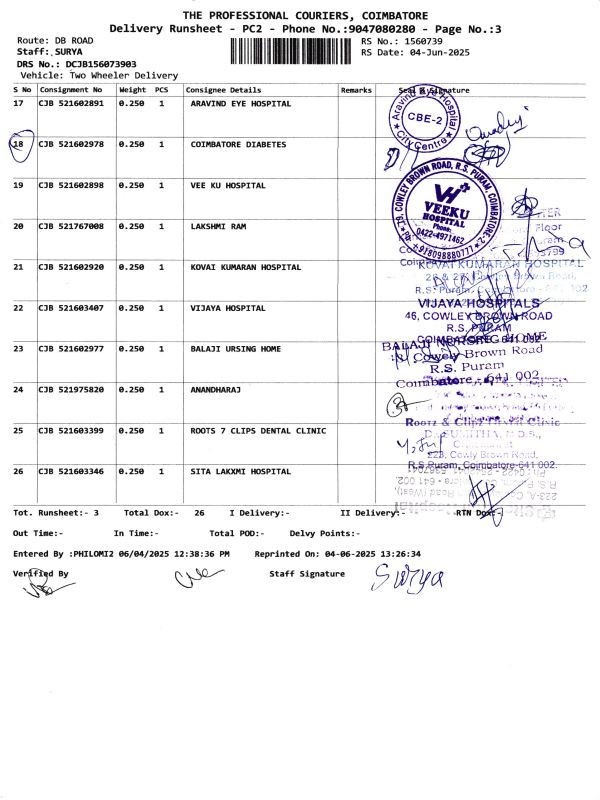 THE PROFESSIONAL COURIERS, COIMBATORE
Delivery Runsheet - PC2 - Phone No.:9047080280 - Page No.:3
Route: DB ROAD
RS No.: 1560739
Staff: SURYA
RS Date: 04-Jun-2025
DRS No.: DCJB156073903
Vehicle: Two Wheeler Delivery
S No Consignment No Weight PCS Consignee Details Remarks Seal & Signature
17 CJB 521602891 0.250 1 ARAVIND EYE HOSPITAL
Aravind Eye Hospital
CBE-2
City Centre
18 CJB 521602978 0.250 1 COIMBATORE DIABETES
19 CJB 521602898 0.250 1 VEE KU HOSPITAL
COWLEY BROWN ROAD, R.S. PURAM, COIMBATORE-2
VH
VEEKU
HOSPITAL
Phone:
0422-4971462
+918098880777
20 CJB 521767008 0.250 1 LAKSHMI RAM
Floor
21 CJB 521602920 0.250 1 KOVAI KUMARAN HOSPITAL
KOVAI KUMARAN HOSPITAL
Brown Road,
R.S. Puram, Coimbatore - 641 002
22 CJB 521603407 0.250 1 VIJAYA HOSPITAL
VIJAYA HOSPITALS
46, COWLEY BROWN ROAD
R.S. PURAM
23 CJB 521602977 0.250 1 BALAJI URSING HOME
BALAJI NURSING HOME
Cowely Brown Road
R.S. Puram
Coimbatore - 641 002
24 CJB 521975820 0.250 1 ANANDHARAJ
25 CJB 521603399 0.250 1 ROOTS 7 CLIPS DENTAL CLINIC
Rootz & Clipz Dental Clinic
Cowly Brown Road,
R.S.Puram, Coimbatore-641 002.
26 CJB 521603346 0.250 1 SITA LAKXMI HOSPITAL
Tot. Runsheet:- 3 Total Dox:- 26 I Delivery:- II Delivery:- RTN Dox:-
Out Time:- In Time:- Total POD:- Delvy Points:-
Entered By :PHILOMI2 06/04/2025 12:38:36 PM Reprinted On: 04-06-2025 13:26:34
Verified By Staff Signature Surya